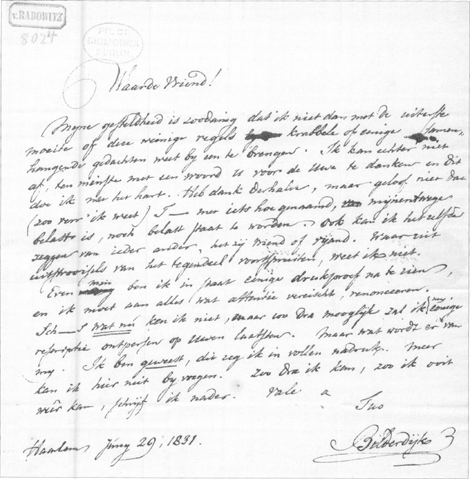 v. RADOWITZ
8024
Waarde Vriend!
Mijne gesteldheid is zoodanig dat ik niet dan met de uiterste
moeite of deze weinige regels krabbele of eenige samen,
hangende gedachten weet by een te brengen. Ik kan echter niet
af, ten minste met een woord u voor de Uwe te danken en dit
doe ik met het hart. Heb dank derhalve, maar geloof niet dat
(zoo verr' ik weet) T— met iets hoegenaamd, mynentwege
belast is, noch belast staat te worden. Ook kan ik het zelfde
zeggen van ieder ander, het zij vriend of vijand. Waar uit
uitstrooisels van het tegendeel voortspruiten, weet ik niet.
Even min ben ik in staat eenige drukproef na te zien,
en ik moet aan alles wat attentie vereischt, renonceren.
wat nu ken ik niet, maar zoo dra mooglijk zal ik my eenige
op uwen laatsten. Maar wat wordt er van
my. Ik ben geweest, die zeg ik in vollen nadruk. Meer
kan ik hier niet by voegen. Zoo dra ik kan, zoo ik ooit
weêr kan, schrijf ik nader. Vale a
Tuo
Haarlem Juny 29, 1831.
Bilderdijk